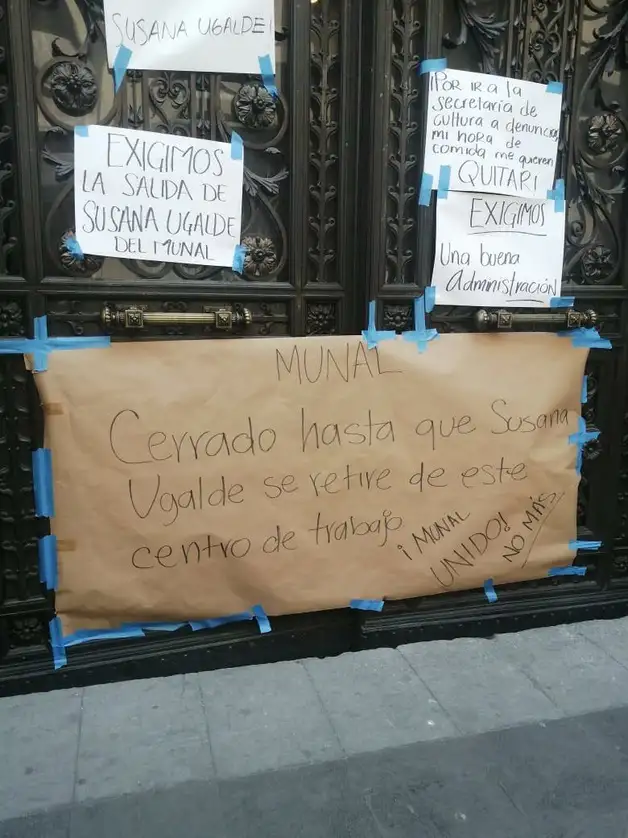 SUSANA UGALDE!
EXIGIMOS
LA SALIDA DE
SUSANA UGALDE
DEL MUNAL
¡POR IR A la
secretaria de
cultura a denunciar,
mi hora de
comida me quieren
QUITAR!
EXIGIMOS
Una buena
Administración
MUNAL
Cerrado hasta que Susana
Ugalde se retire de este
centro de trabajo
¡MUNAL
UNIDO!
NO MÁS